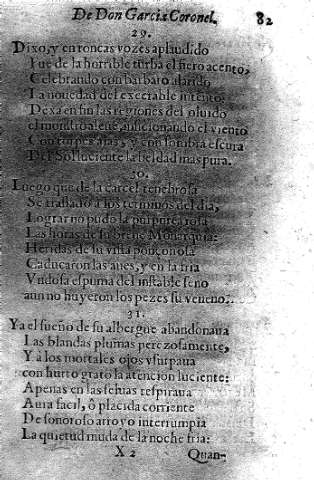 De Don Garcia Coronel. 82
29.
Dixo, y en roncas vozes aplaudido
Fue de la horrible turba el fiero acento,
Celebrando con barbaro alarido
La nouedad del execrable intento:
Dexa en fin las regiones del oluido
el monstro aleue, inficionando el viento
Con torpes alas, y con sombra escura
Del Sol luciente la beldad mas pura.
30.
Luego que de la carcel tenebrosa
Se trasladò a los terminos del dia,
Lograr no pudo la purpurea rosa
Las horas de su breue Monarquia:
Heridas de su vista ponçoñosa
Caducaron las aues, y en la fria
Vndosa espuma del instable seno
aun no huyeron los pezes su veneno.
31.
Ya el sueño de su albergue abandonaua
Las blandas plumas perezosamente,
Y à los mortales ojos vsurpaua
con hurto grato la atencion luciente:
Apenas en las seluas respiraua
Aura facil, ô placida corriente
De sonoroso arroyo interrumpia
La quietud muda de la noche fria:
X 2 Quan-